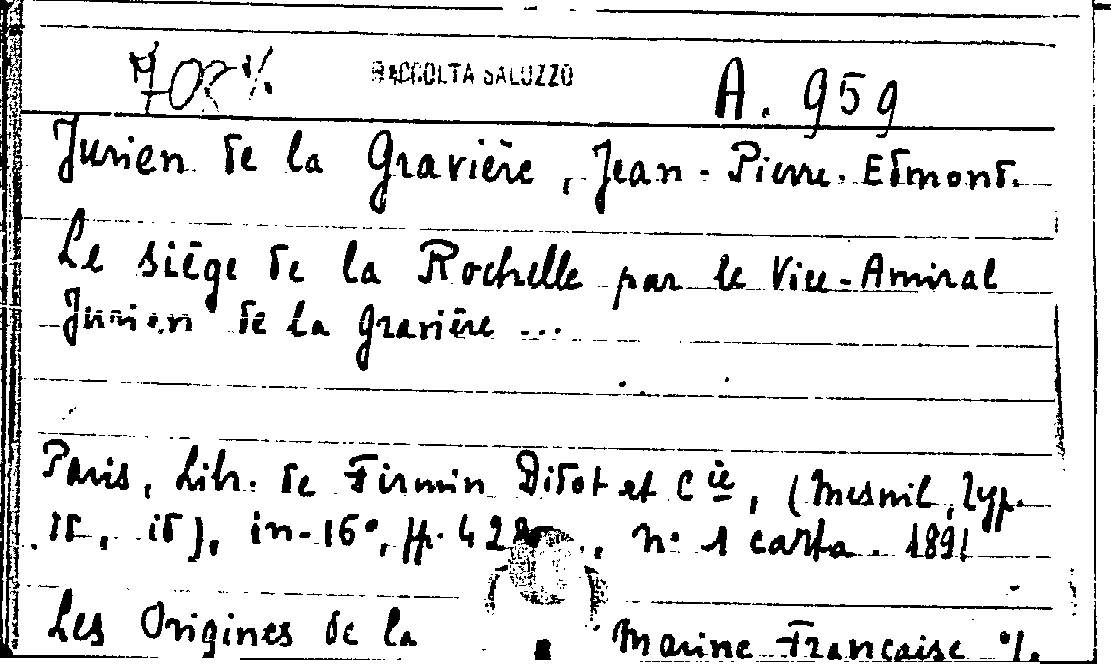 RACCOLTA SALUZZO A. 959
Jurien de la Gravière, Jean-Pierre-Edmond.
Le siège de la Rochelle par le Vice-Amiral
Jurien de la Gravière ...
Paris, Libr. de Firmin Didot et Cie, (Mesnil, Typ.
id, id), in-16°, pp. 42 , n° 1 carta. 1891
Les Origines de la Marine Française %.